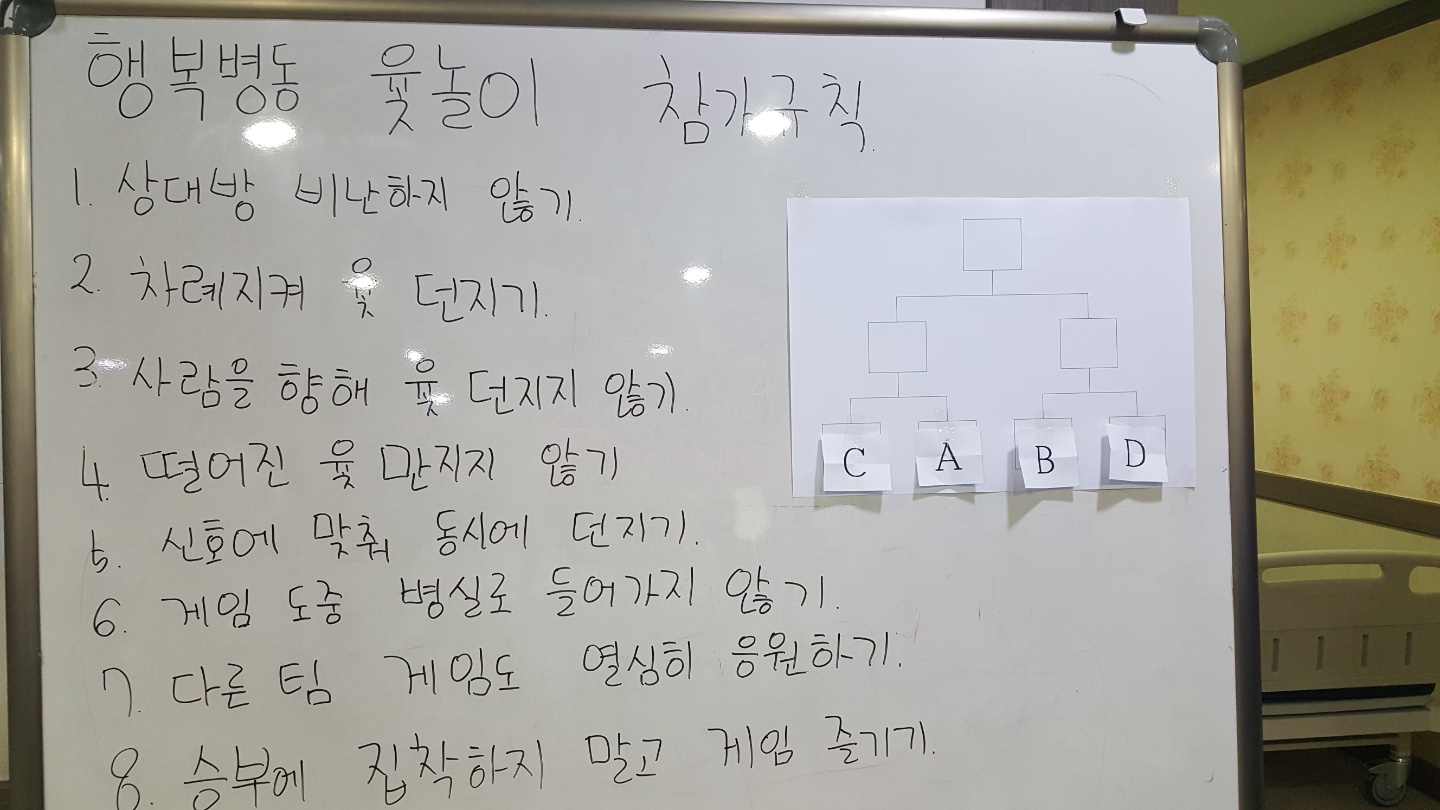 행복병동 윷놀이 참가규칙.
1. 상대방 비난하지 않기.
2. 차례지켜 윷 던지기.
3. 사람을 향해 윷 던지지 않기.
4. 떨어진 윷 만지지 않기
5. 신호에 맞춰 동시에 던지기.
6. 게임 도중 병실로 들어가지 않기.
7. 다른 팀 게임도 열심히 응원하기.
8. 승부에 집착하지 말고 게임 즐기기.
C A B D